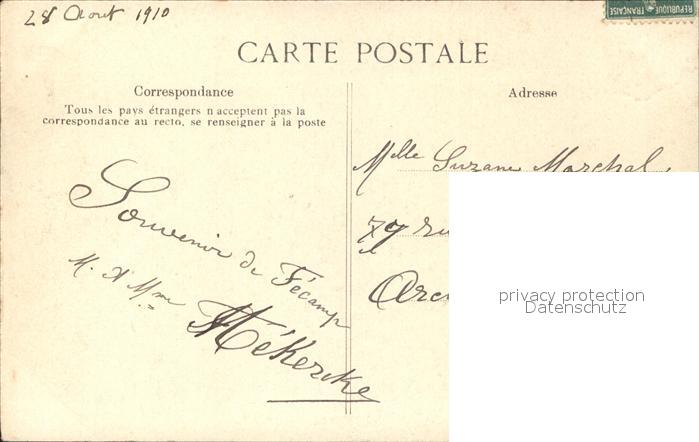 28 Août 1910
REPUBLIQUE FRANÇAISE
CARTE POSTALE
Correspondance
Tous les pays étrangers n'acceptent pas la
correspondance au recto, se renseigner à la poste
Souvenir de Fécamp
M. & Mme
Adresse
Mlle Suzane Marchal
79 ru
privacy protection
Datenschutz